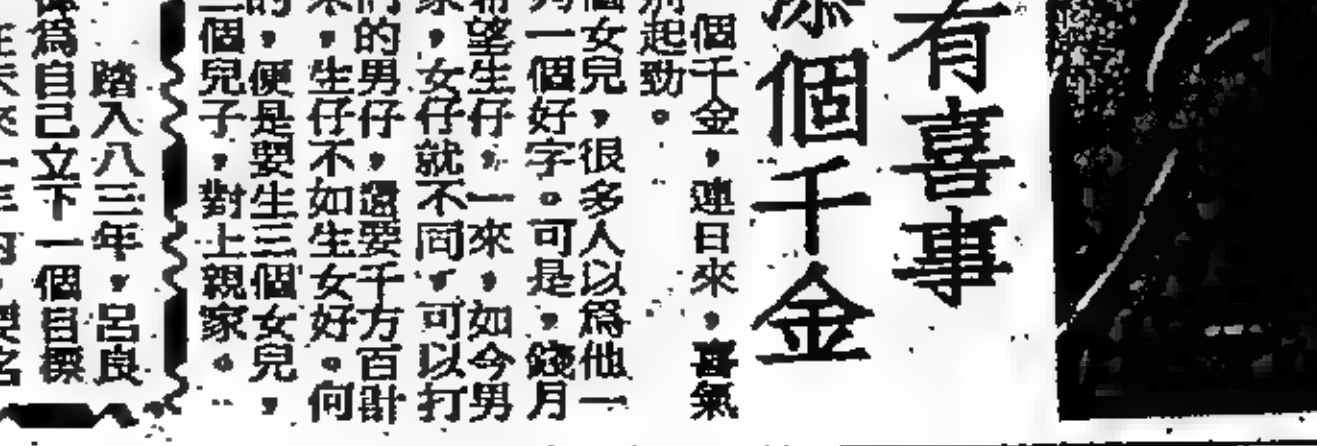 有喜事
添個千金
個千金，連日來，喜氣
別起勁。
個女兒，很多人以為他一
一個好字。可是，錢月
希望生仔，一來，如今男
家，女仔就不同，可以打
們的男仔，還要千方百計
來，生仔不如生女好。何
的，便是要生三個女兒，
個兒子，對上親家。
踏入八三年，呂良
為自己立下一個目標